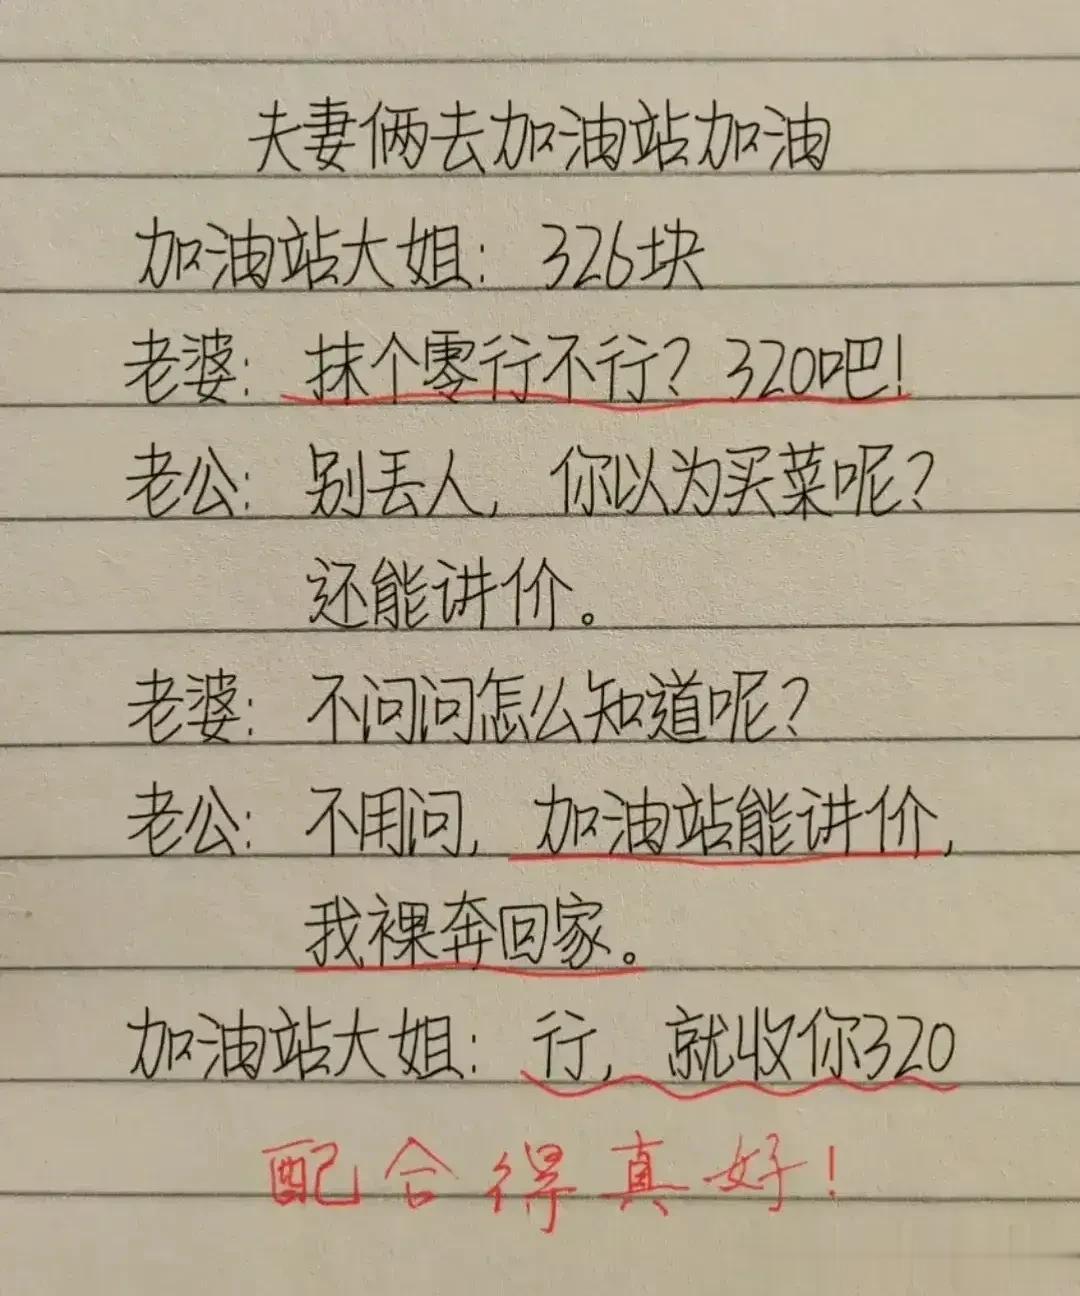 夫妻俩去加油站加油
加油站大姐：326块
老婆：抹个零行不行？320吧！
老公：别丢人，你以为买菜呢？
还能讲价。
老婆：不问问怎么知道呢？
老公：不用问，加油站能讲价，
我裸奔回家。
加油站大姐：行，就收你320
配合得真好！